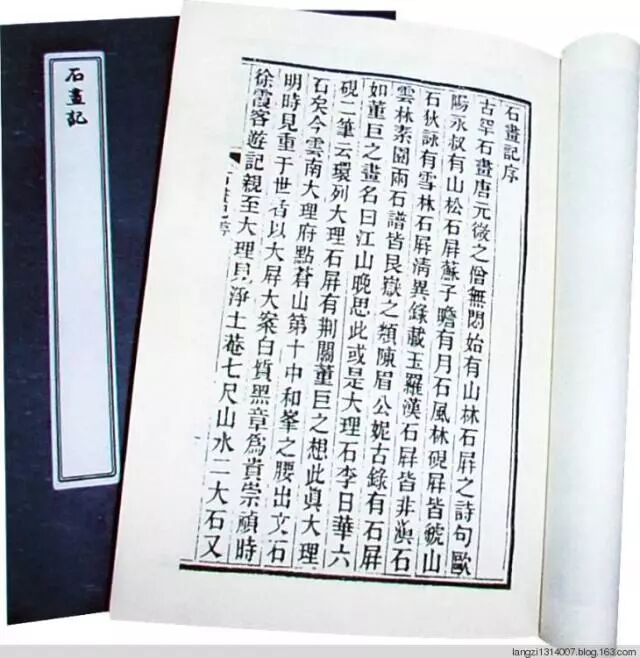 石畫記
石畫記序
古罕石畫唐元微之僧無悶始有山林石屏之詩句歐
陽永叔有山松石屏蘇子瞻有月石風林硯屏皆虢山
石狄詠有雪林石屏清異錄載玉羅漢石屏皆非滇石
雲林素園兩石譜皆艮嶽之類陳眉公妮古錄有石屏
如董巨之畫名曰江山晚思此或是大理石李日華六
硯二筆云環列大理石屏有荊關董巨之想此眞大理
石矣今雲南大理府點蒼山第十中和峯之腰出文石
明時見重于世皆以大屏大案白質黑章爲貴崇禎時
徐霞客遊記親至大理見淨土菴七尺山水二大石又
langzi1314007.blog.163.com